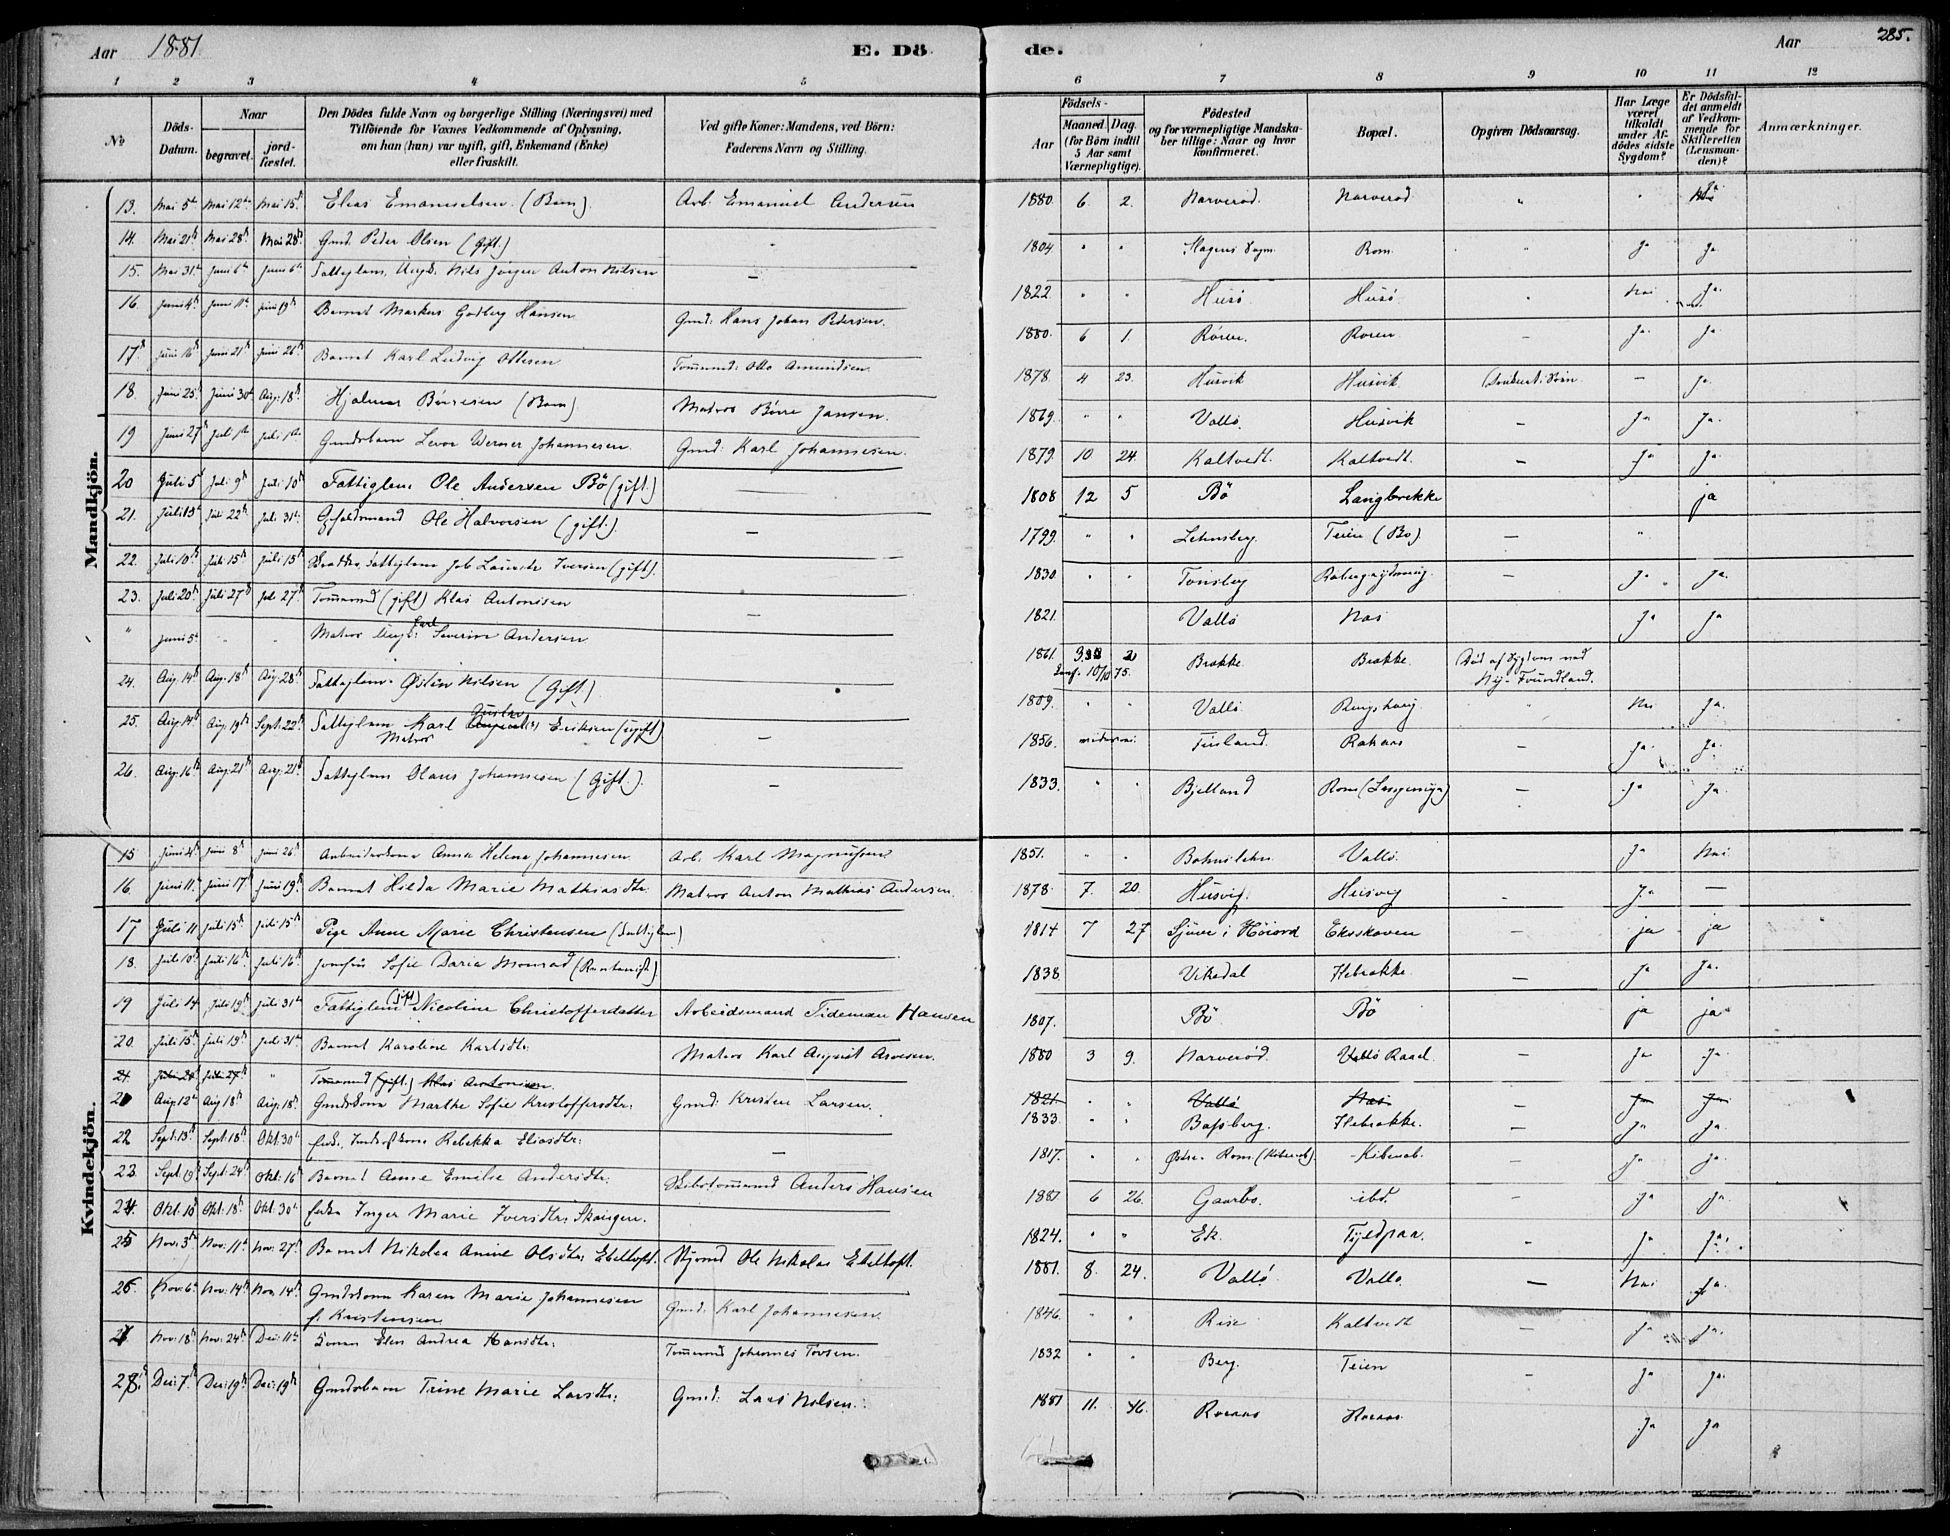 Aar 1881.
E. Dö
de.
Aar
285.
1 2 3 4 5
6 7 8 9 10 11 12
No
Döds-Datum.
Naar
begravet.
jord-fæstet.
Den Dödes fulde Navn og borgerlige Stilling (Næringsvei) med
Tilföiende for Voxnes Vedkommende af Oplysning,
om han (hun) var ugift, gift, Enkemand (Enke)
eller fraskilt.
Ved gifte Koner: Mandens, ved Börn:
Faderens Navn og Stilling.
Födsels-
Aar
Maaned. Dag.
(for Børn indtil
5 Aar samt
Værnepligtige).
Födested
og for værnepligtige Mandska-
ber tillige: Naar og hvor
konfirmeret.
Bopæl.
Opgiven Dödsaarsag.
Har Læge
været
tilkaldt
under Af-
dödes sidste
Sygdom?
Er Dödsfal-
det anmeldt
af Vedkom-
mende for
Skifteretten
(Lensman-
den)?
Anmærkninger.
Mandkjön.
13. Mai 5 Mai 12 Mai 15 Elias Emanuelsen (Barn) Arb. Emanuel Andersen 1880 6. 2. Narverød Narverød " " Ja
14. Mai 21 Mai 28 Mai 28 Gmd. Peder Olsen (Gift.) 1804 " " Slagens Sogn Rom. Ja Ja
15. Mai 31 Juni 6 Juni 6 Fattiglem, Ungk. Nils Jørgen Anton Nilsen — 1822 " " Husø Husø Nei Ja.
16. Juni 4 Juni 11 Juni 19 Barnet Markus Godberg Hansen Gmd: Hans Johan Pedersen. 1880. 6 1. Røren. Røren — Ja. Ja
17. Juni 16 Juni 21 Juni 26 Barnet Karl Ludvig Ottesen Tømmermd: Otto Amundsen 1878. 4 23. Husvik Husvik Druknet i Søen — Ja.
18. Juni 25 Juni 30 Aug. 18 Hjalmar Børresen (Barn) Matros Børre Jansen. 1869. " " Vallø. Husvik — Ja Ja.
19 Juni 27 Juli 1 Juli 1 Gmdsbarn Werner Johannesen Gmd: Karl Johannesen. 1879. 10 24. Kaltvedt. Kaltvedt. — Ja Ja.
20 Juli 5 Juli 9 Juli 10 Fattiglem Ole Andersen Bö (gift) 1808 12 5 Bö Langbrekke ja
21. Juli 13 Juli 22 Juli 31 Ole Halvorsen (gift.) — 1799. " " Lehnsberg. Teien (Bö) — "
22. Juli 10 Juli 15 Juli 15 Fattiglem Job Laurits Iversen (gift). 1830. " " Tønsberg — Ja Ja.
23. Juli 20 Juli 27 Juli 27 Tømmermd (gift) Klas Antonisen — 1821. Vallø Næs Ja Ja
" Juni 5 " " Matros Ungk: Karl Severin Andersen 1861. Konf. 10/10 75. Brække. Brække. Død af Sygdom ved Ny-Foundland.
24. Aug. 14 Aug. 18 Aug. 28 Fattiglem Østen Nilsen (Gift.) — 1809. " " Vallø Ringshaug Nei Ja.
25. Aug. 14 Aug. 19 Sept. 22 Fattiglem Karl Gustav Eriksen (ugift) Matros — 1856. Rakaas Ja. Ja.
26. Aug. 16 Aug. 21 Aug. 21 Fattiglem Olaus Johannesen (Gift.) — 1833. " " Bjelland Rom — Ja Ja.
Kvindekjön.
15 Juni 4 Juni 8 Juni 26 Arbeiderkone Anna Helena Johannesen Arb. Karl Magnussen 1851. " " Bohuslehn. Vallø. Ja Nei.
16. Juni 11 Juni 17 Juni 19 Barnet Hilda Marie Mathiasdtr. Matros Anton Mathias Andersen. 1878. 7. 20 Husvig. Husvig Ja —
17 Juli 11 Juli 15 Juli 15 Pige Anne Marie Christensen (Fattiglem) 1814 7 27 Sjuve i Höiord Eksskoven ja ja
18. Juli 10 Juli 16 Juli 16 Jomfru Sofie Daria Monrad 1838 Vikedal Ilebrække. Ja Ja.
19 Juli 14 Juli 19 Juli 31 Fattiglem (gift) Nicoline Christoffersdatter Arbeidsmand Tideman Hansen 1807. Bö Bö ja ja
20. Juli 15 Juli 19 Juli 31 Barnet Karoline Karlsdtr: Matros Karl August Arvesen. 1880 3 9. Narverød. Vallø Raael. — Ja Ja.
21. Juli 20 Juli 27 " Tømmermd (gift.) Klas Antonisen. 1821. " Vallø Næs — Ja Ja
21 Aug. 12 Aug. 18 Aug. 18 Gmdskone Marthe Sofie Kristoffersdtr: Gmd: Kristen Larsen. 1833. " " Basberg. Ilebrække. — Ja Ja.
22 Sept. 13 Sept. 18 Okt. 30 Enke, Rebekka Eliasdtr: — 1817. " " Østre Rom. — Ja Ja.
23. Sept. 19 Sept. 24 Okt. 16 Barnet Anne Emilie Andersdtr. Skibstømmermd Anders Hansen 1881 6 26. Gaarbo. ibd. — Ja Ja
24. Okt. 10 Okt. 18 Okt. 30 Enke Inger Marie Iversdtr: 1824. " " Ek. — Ja Ja.
25 Nov: 3 Nov: 11 Nov. 27 Barnet Nikolea Anine Olsdtr. Ebeltoft. Ole Nikolai Ebeltoft. 1881. 8. 24. Vallø Vallø — Nei Ja.
26 Nov. 6 Nov: 14 Nov. 14 Gmdskone Karen Marie Johannesen f. Kristensen Gmd: Karl Johannesen. 1846. " " Rise Kaltvedt — Ja Ja.
27 Nov: 18 Nov: 24 Dec: 11 Konen Elen Andrea Hansdtr. Tømmermd Johannes Torsen. 1832 " " Berg. Teien — Ja Ja.
28. Dec: 7 Dec: 19 Dec: 19 Gmdsbarn Trine Marie Larsdtr: Gmd: Lars Nilsen. 1881 11. 16. Roraas Roraas Ja Ja